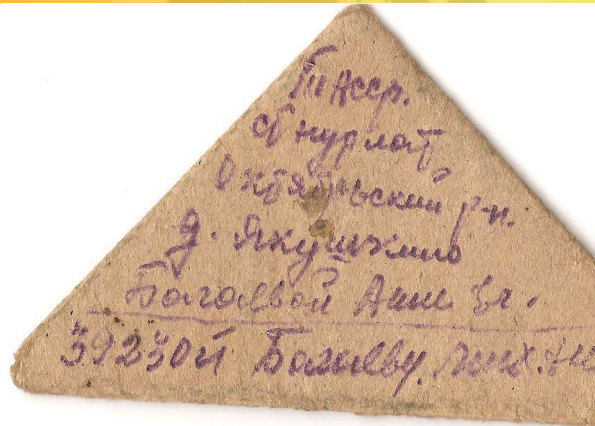 ТАсср.
ст нурлат,
Октябрьский р-н.
д. Якушкино
Багаевой Анне
39230й Багаеву.